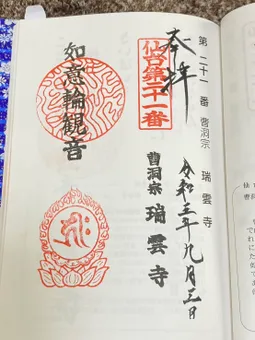 第二十一番 曹洞宗 瑞雲寺
奉拝
令和三年九月三日
仙台第二十一番
曹洞宗 瑞雲寺
如意輪観音